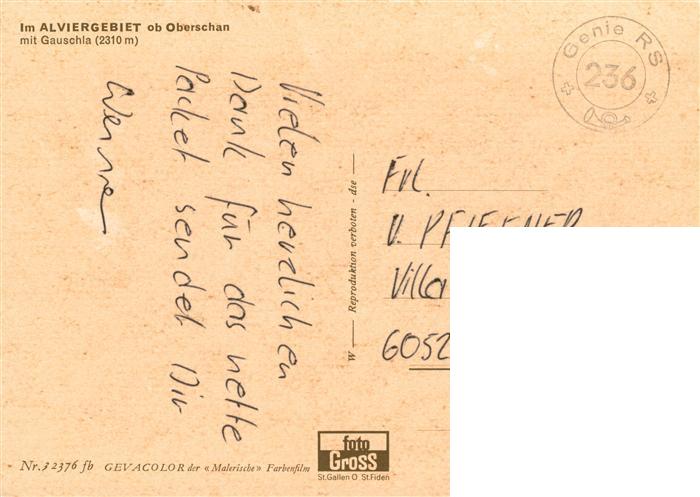 Im ALVIERGEBIET ob Oberschan
mit Gauschla (2310 m)
Genie RS
236
Vielen herzlichen
Dank für das nette
Packet sendet Dir
Werner
W — Reproduktion verboten - dse —
Frl.
V. PFIFFNER
Villa
6052
Nr. 32376 fb GEVACOLOR der «Malerische» Farbenfilm
foto
GROSS
St.Gallen O St.Fiden